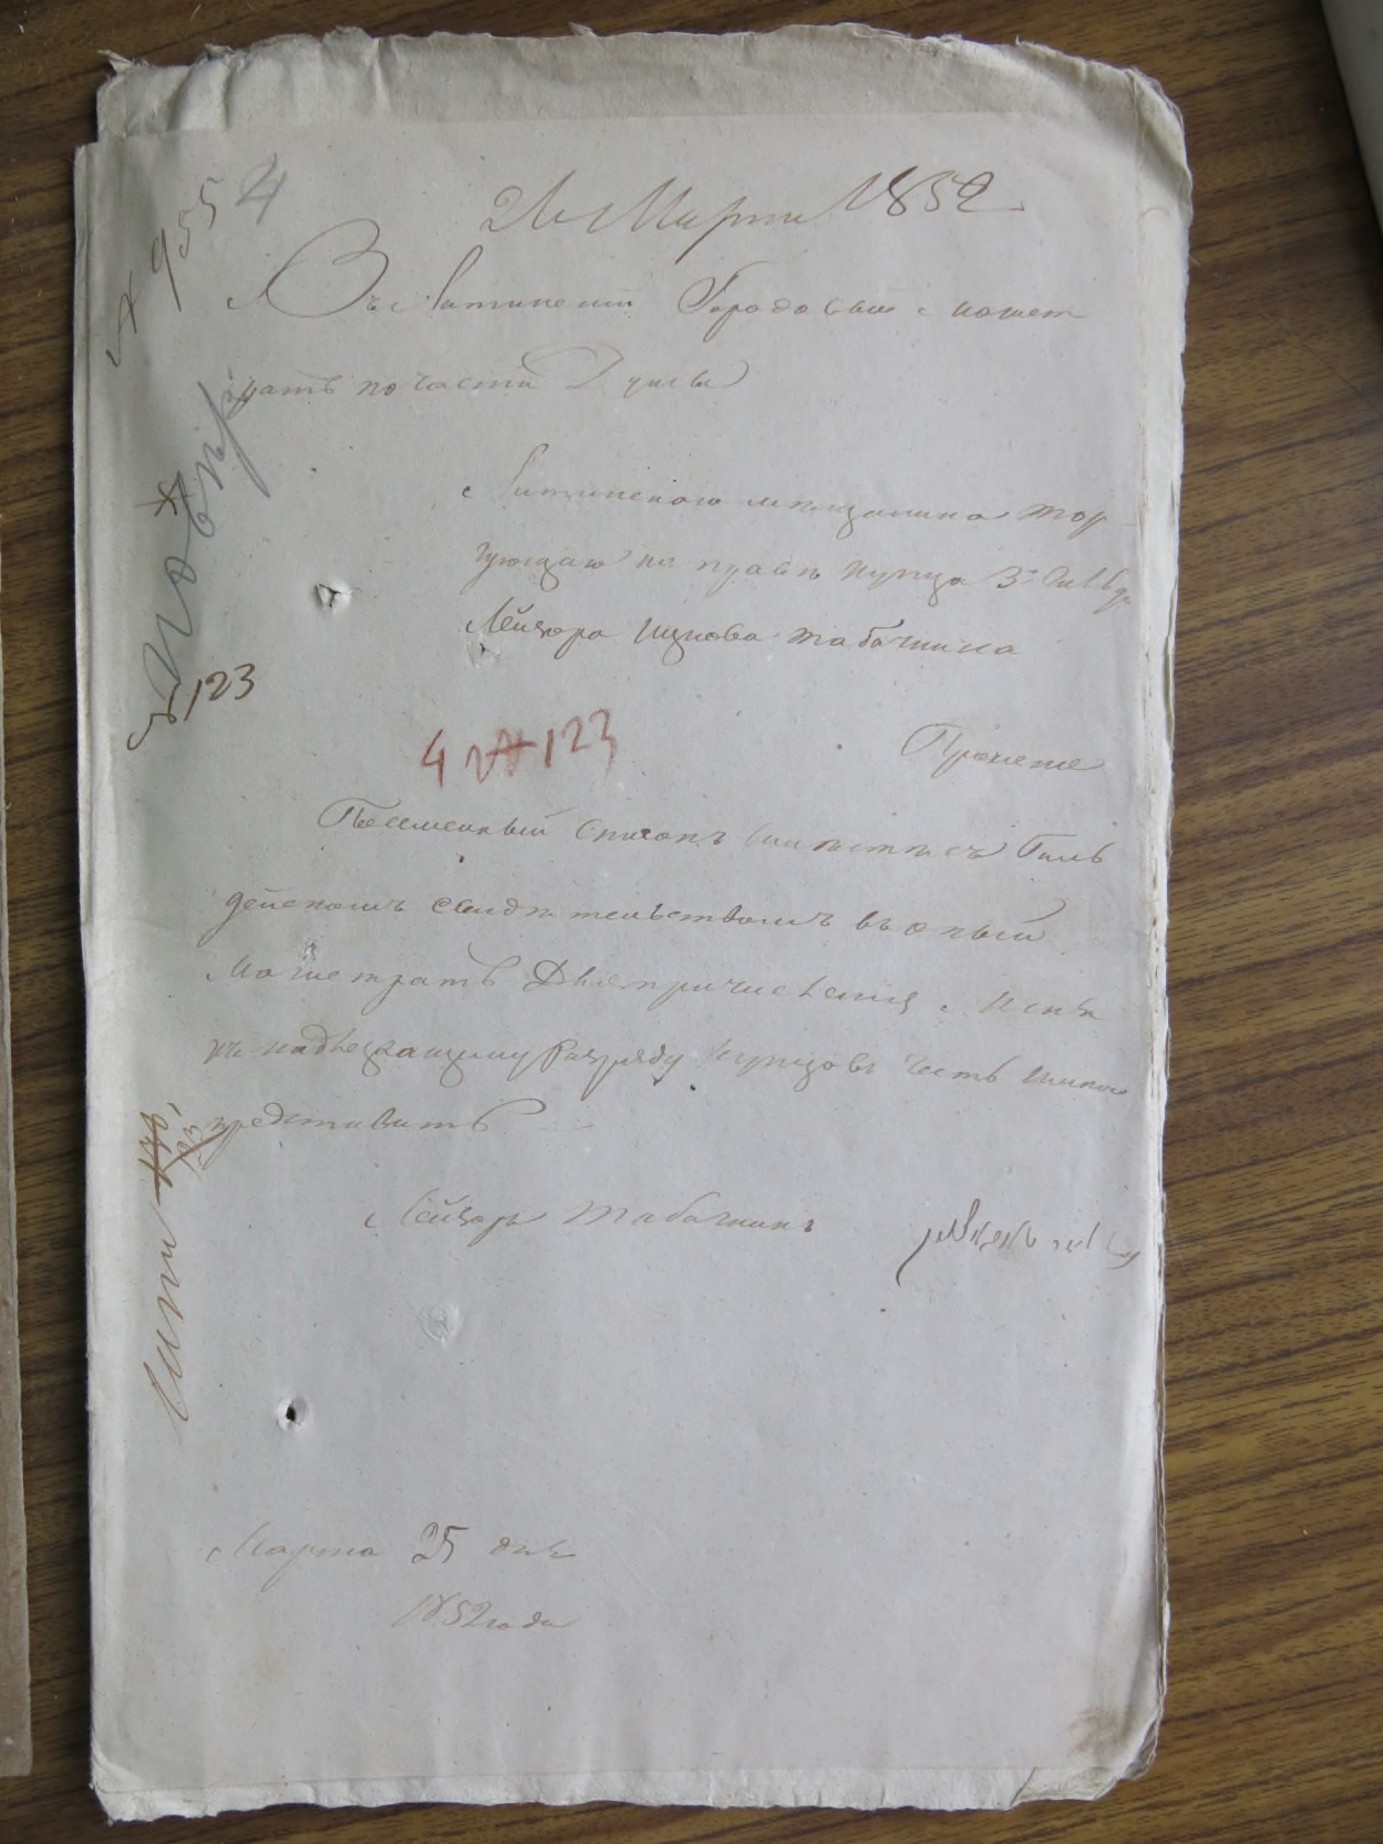 № 955
4
26 Марта 1852
Въ Литинскій Городовый Магист
ратъ по части Думы
Литинскаго мѣщанина тор
гующаго на правѣ купца 3й гильд
Лейзора Ицкова Табачника
123
4 № 123
Прошеніе
Посемейный Списокъ вмѣстѣ съ Гиль
дейскимъ свидѣтельствомъ въ оный
Магистратъ Для причисленія меня
къ надлежащему Разряду купцовъ честь имею
представить
Лейзоръ Табачникъ
Марта 25 дня
1852 года